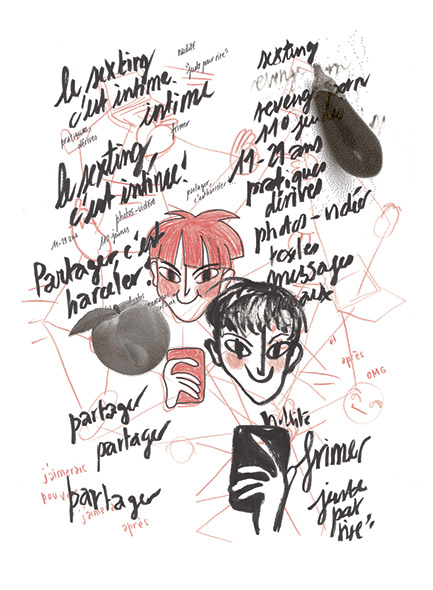 le sexting
c'est intime.
intime
nudité
"juste pour rire"
pratiques
dérives
frimer
le sexting,
c'est intime!
partager,
c'est harceler
photos-vidéo
11-21 ans
110 jeunes
Partager c'est
harceler!
partager
partager
partager
j'aimerais
pouv
j'aime
après
sexting
revenge porn
revenge porn
110 jeunes
11-21 ans
pratiques
dérives
photos-vidéo
messages
aux
et
après
OMG
nudité
frimer
juste
pour
rire"